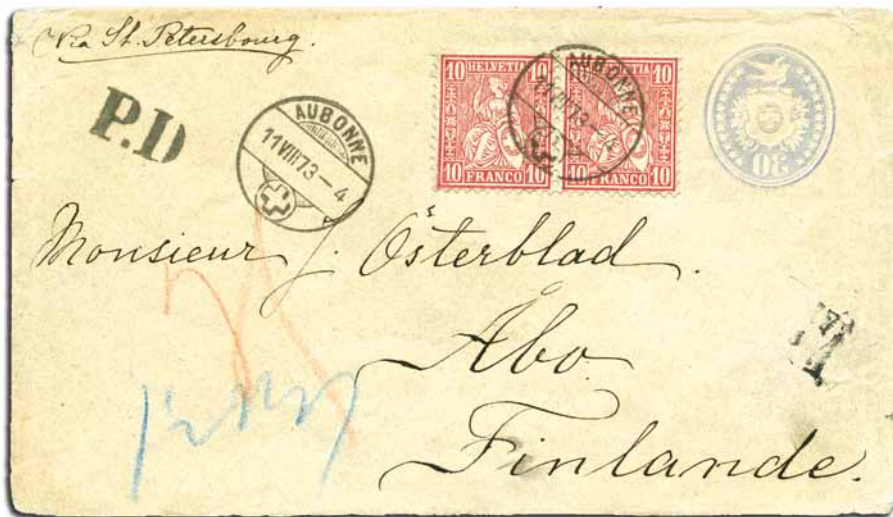 Via St. Petersbourg.
P.D
AUBONNE
11 VIII 73 – 4
10 HELVETIA 10
10 FRANCO 10
AUBONNE
11 VIII 73 – 4
10 FRANCO 10
30
Monsieur J. Österblad.
Åbo
Finlande.